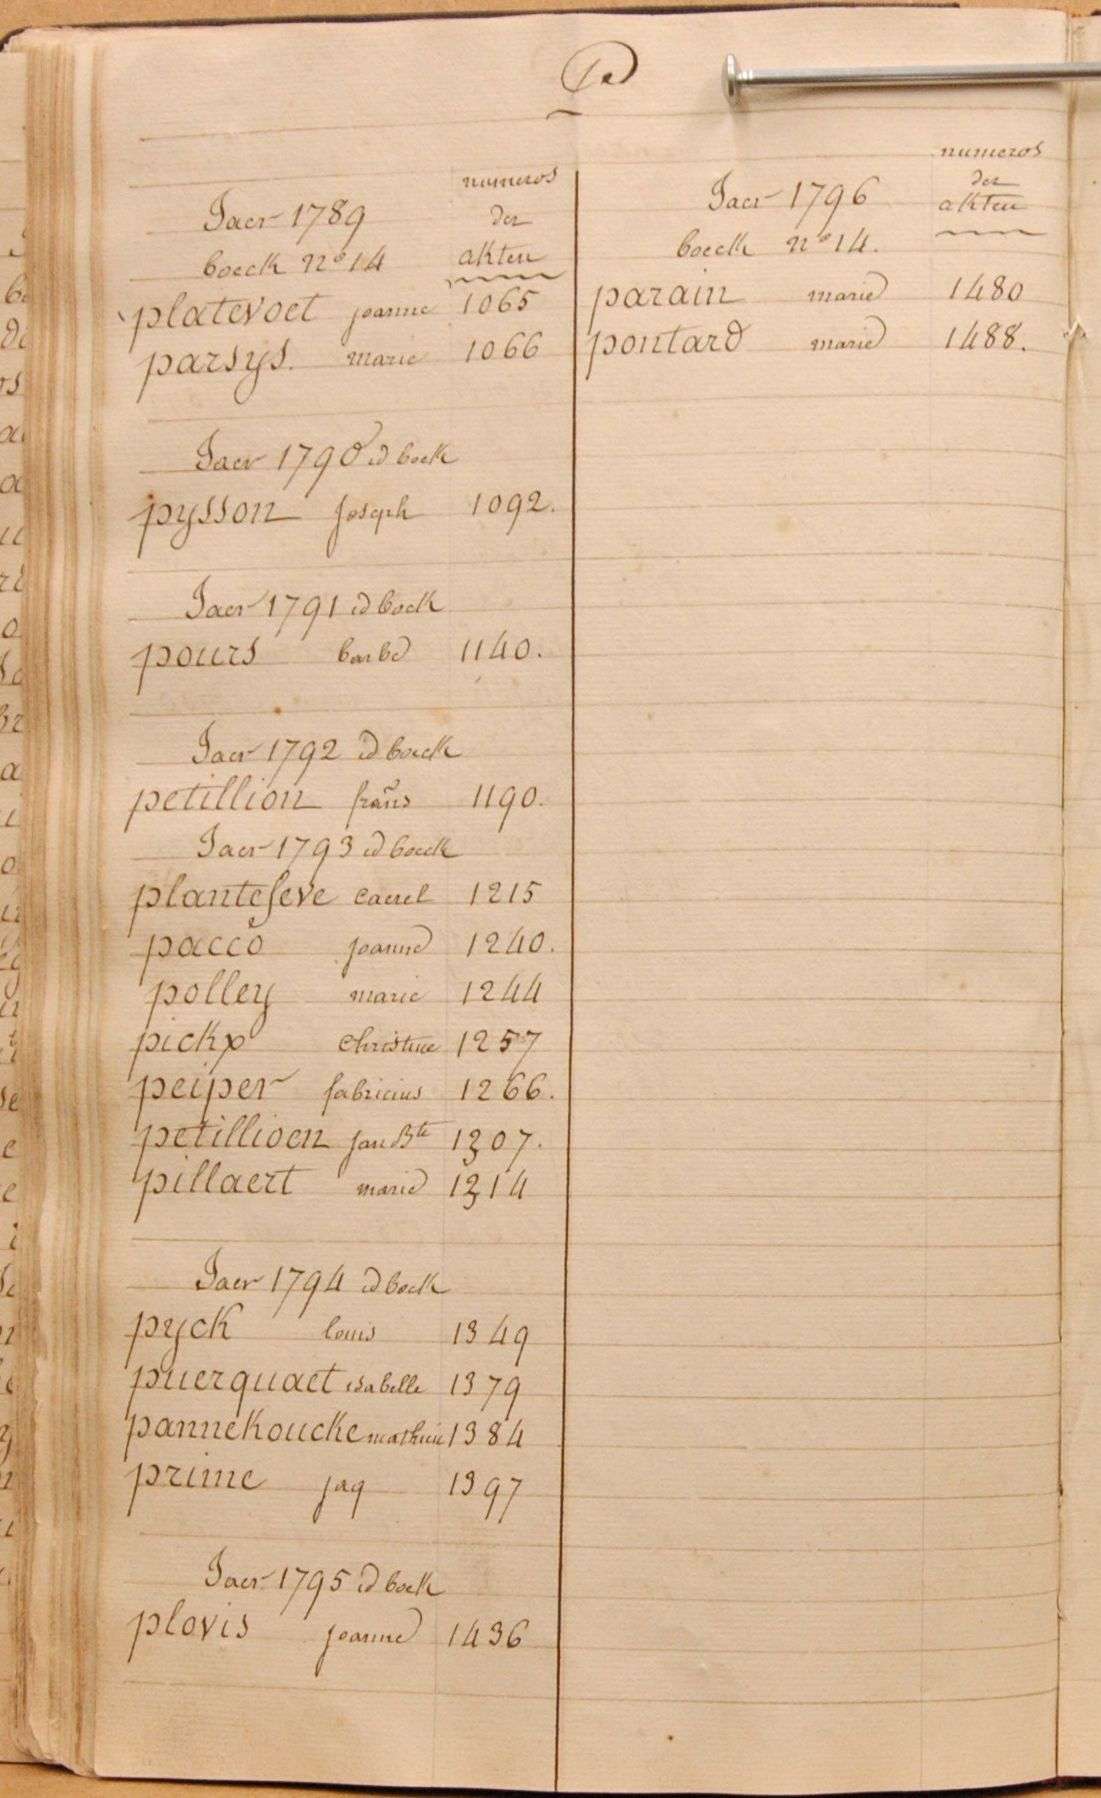 P
numeros
Jaer 1789 der
boeck n° 14 akten
platevoet joanne 1065
parsys. marie 1066
Jaer 1790 id boek
pysson joseph 1092.
Jaer 1791 id boek
pours barbe 1140.
Jaer 1792 id boeck
petillion frans 1190.
Jaer 1793 id boeck
plantefeve caerel 1215
pacco joanne 1240.
polley marie 1244
pickx christine 1257
peiper fabricius 1266.
petillioen jan Bte 1307.
pillaert marie 1314
Jaer 1794 id boek
pyck louis 1349
puerquaet isabelle 1379
pannekoucke mathieu 1384
prime jaq 1397
Jaer 1795 id boek
plovis joanne 1436
numeros
Jaer 1796 der
akten
boeck n° 14.
parain marie 1480
pontard marie 1488.